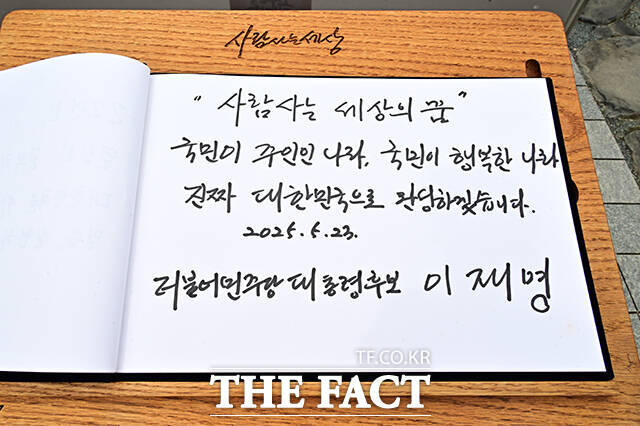 사람사는세상
"사람사는 세상의 꿈"
국민이 주인인 나라, 국민이 행복한 나라
진짜 대한민국으로 완성하겠습니다.
2025. 5. 23.
더불어민주당 대통령후보 이재명
TF.CO.KR
THE FACT